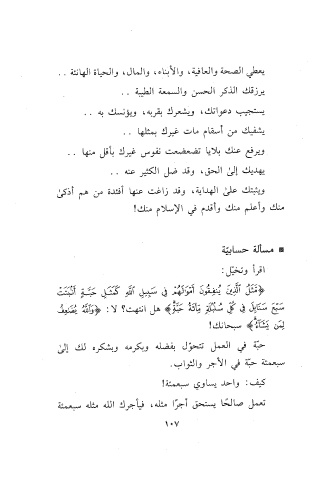 يعطي الصحة والعافية، والأبناء، والمال، والحياة الهانئة ..
يرزقك الذكر الحسن والسمعة الطيبة ..
يستجيب دعواتك، ويشعرك بقربه، ويؤنسك به ..
يشفيك من أسقام مات غيرك بمثلها ..
ويرفع عنك بلايا تضعضعت نفوس غيرك بأقل منها ..
يهديك إلىٰ الحق، وقد ضل الكثير عنه ..
ويثبتك علىٰ الهداية، وقد زاغت عنها أفئدة من هم أذكىٰ
منك وأعلم منك وأقدم في الإسلام منك!
▪ مسألة حسابيّة
اقرأ وتخيّل:
﴿مَّثَلُ ٱلَّذِينَ يُنفِقُونَ أَمْوَٰلَهُمْ فِى سَبِيلِ ٱللَّهِ كَمَثَلِ حَبَّةٍ أَنۢبَتَتْ
سَبْعَ سَنَابِلَ فِى كُلِّ سُنۢبُلَةٍ مِّا۟ئَةُ حَبَّةٍ﴾ هل انتهت؟ لا: ﴿وَٱللَّهُ يُضَٰعِفُ
لِمَن يَشَآءُ﴾ سبحانك!
حبّة في العمل تتحوّل بفضله وبكرمه وبشكره لك إلىٰ
سبعمئة حبّة في الأجر والثواب.
كيف: واحد يساوي سبعمئة!
تعمل صالحًا يستحق أجرًا مثله، فيأجرك الله مثله سبعمئة
١٠٧